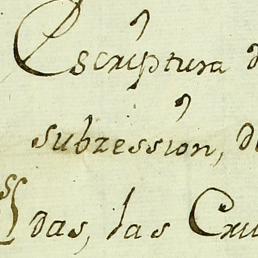 Escriptura d
subression, de
das, las Cru